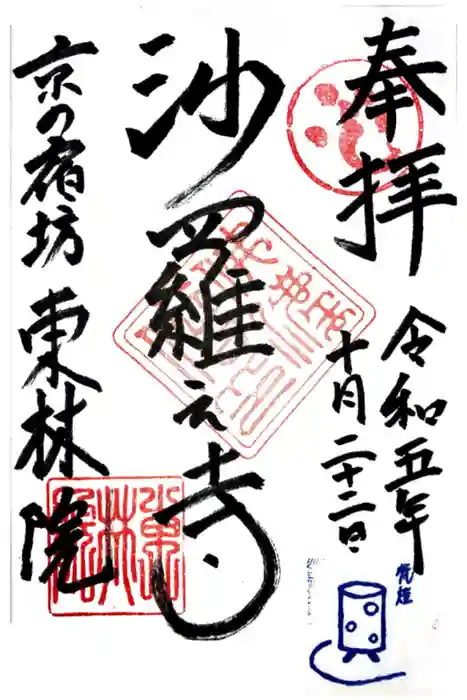 奉拝
令和五年
十月二十二日
沙羅之寺
京の宿坊 東林院